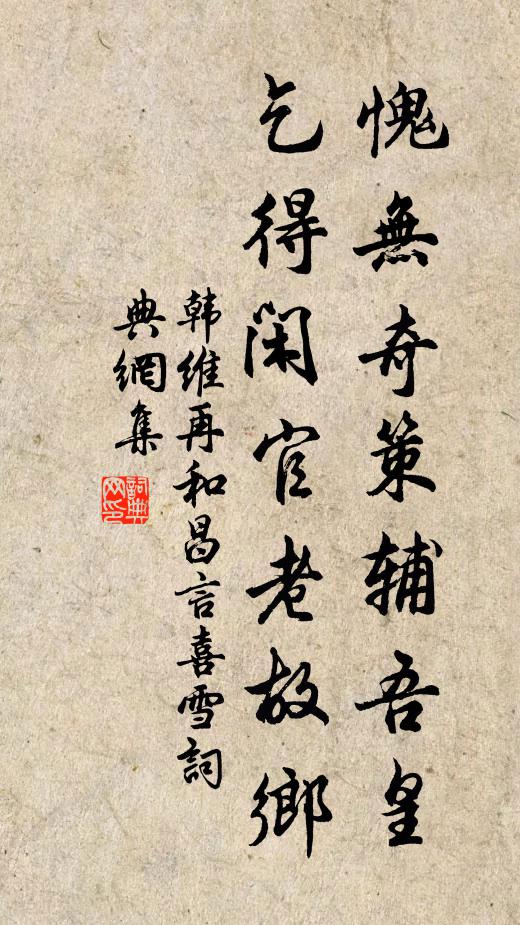 愧無奇策辅吾皇
乞得閑官老故鄉
韩維再和昌言喜雪詞
典網集
詞典
网印